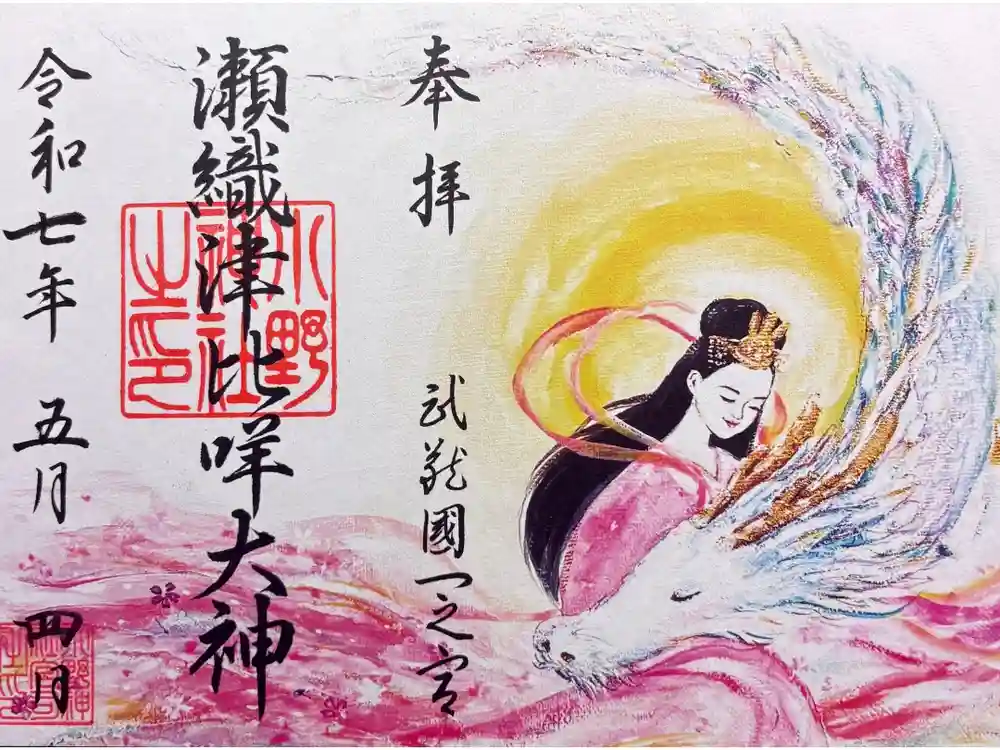 奉拝
武蔵國一之宮
瀬織津比咩大神
小野神社之印
令和七年 五月 四月